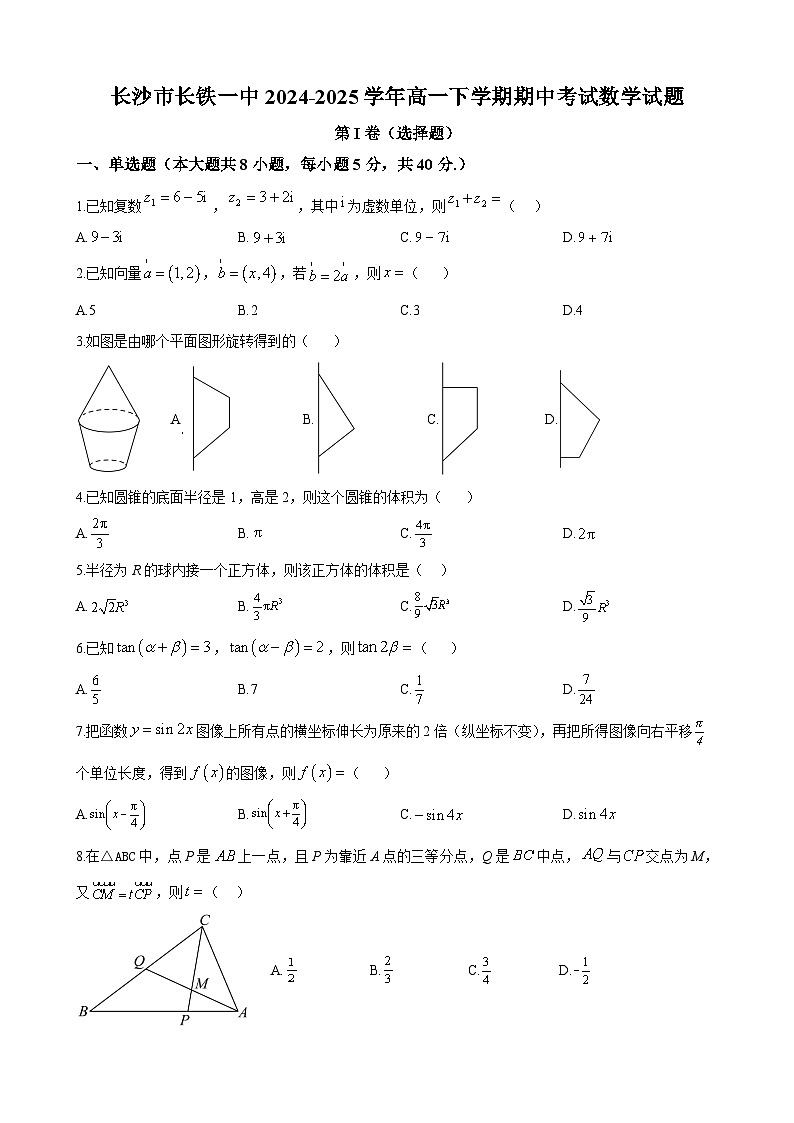 长沙市长铁一中 2024-2025 学年高一下学期期中考试数学试题
第 I 卷（选择题）
一、单选题（本大题共 8 小题，每小题 5 分，共 40 分.）
1.已知复数 z₁ = 6 − 5i ， z₂ = 3 + 2i ，其中 i 为虚数单位，则 z₁ + z₂ = （ ）
A. 9 − 3i B. 9 + 3i C. 9 − 7i D. 9 + 7i
2.已知向量 a = (1, 2) ， b = (x, 4) ，若 b = 2a ，则 x = （ ）
A.5 B. 2 C.3 D.4
3.如图是由哪个平面图形旋转得到的（ ）
A. B. C. D.
4.已知圆锥的底面半径是 1，高是 2，则这个圆锥的体积为（ ）
A. 2π/3 B. π C. 4π/3 D. 2π
5.半径为 R 的球内接一个正方体，则该正方体的体积是（ ）
A. 2√2R³ B. 4/3 πR³ C. 8/9 √3R³ D. √3/9 R³
6.已知 tan(α + β) = 3 ， tan(α − β) = 2 ，则 tan 2β = （ ）
A. 6/5 B.7 C. 1/7 D. 7/24
7.把函数 y = sin 2x 图像上所有点的横坐标伸长为原来的 2 倍（纵坐标不变），再把所得图像向右平移 π/4
个单位长度，得到 f(x) 的图像，则 f(x) = （ ）
A. sin(x − π/4) B. sin(x + π/4) C. − sin 4x D. sin 4x
8.在△ABC 中，点 P 是 AB 上一点，且 P 为靠近 A 点的三等分点，Q 是 BC 中点， AQ 与 CP 交点为 M，
又 CM = tCP ，则 t = （ ）
C
Q
M
B
P
A
A. 1/2 B. 2/3 C. 3/4 D. −1/2